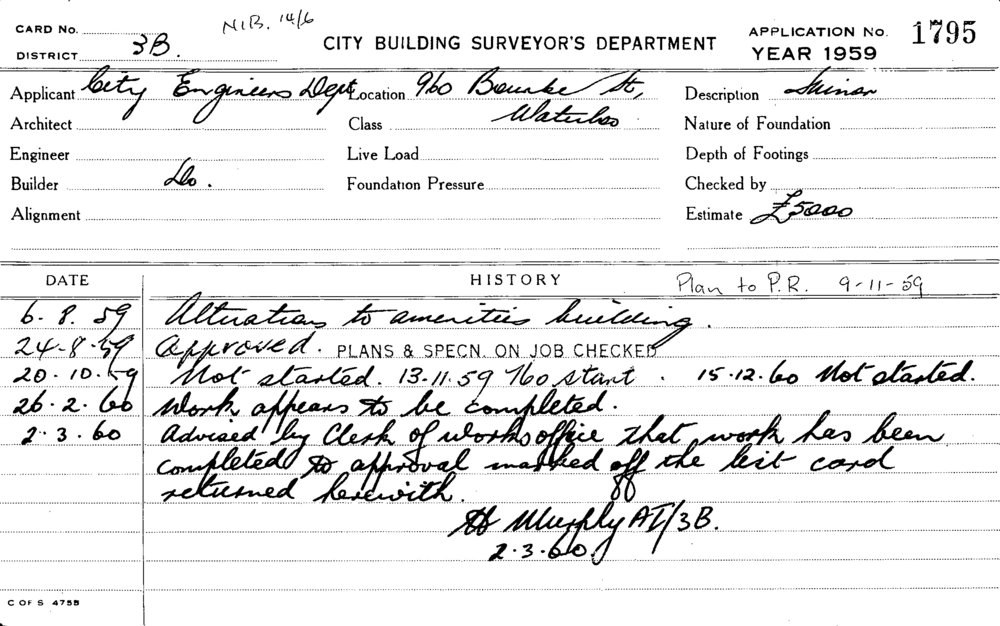 CARD No. N1B. 14/6
DISTRICT 3B.
CITY BUILDING SURVEYOR'S DEPARTMENT
APPLICATION No. 1795
YEAR 1959
Applicant City Engineers Dept Location 960 Bourke St, Description Minor
Architect Class Waterloo Nature of Foundation
Engineer Live Load Depth of Footings
Builder Do. Foundation Pressure Checked by
Alignment Estimate £5000
DATE HISTORY Plan to P.R. 9-11-59
6. 8. 59 Alterations to amenities building.
24-8-59 Approved. PLANS & SPECN. ON JOB CHECKED
20. 10. 59 Not started. 13-11.59 No start. 15.12.60 Not started.
26. 2. 60 Work appears to be completed.
2. 3. 60 Advised by Clerk of works office that work has been
completed to approval marked off the list card
returned herewith.
Murphy AI/3B.
2.3.60.
C OF S 475B